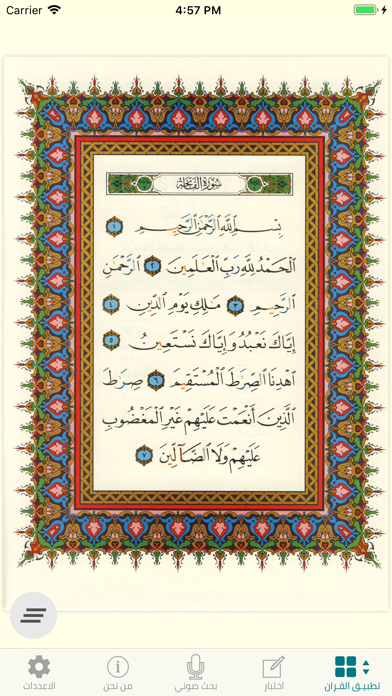 Carrier 4:57 PM
سُورَةُ الفَاتِحَةِ
بِسْمِ ٱللَّهِ ٱلرَّحْمَٰنِ ٱلرَّحِيمِ ١
ٱلْحَمْدُ لِلَّهِ رَبِّ ٱلْعَٰلَمِينَ ٢ ٱلرَّحْمَٰنِ
ٱلرَّحِيمِ ٣ مَٰلِكِ يَوْمِ ٱلدِّينِ ٤
إِيَّاكَ نَعْبُدُ وَإِيَّاكَ نَسْتَعِينُ ٥
ٱهْدِنَا ٱلصِّرَٰطَ ٱلْمُسْتَقِيمَ ٦ صِرَٰطَ
ٱلَّذِينَ أَنْعَمْتَ عَلَيْهِمْ غَيْرِ ٱلْمَغْضُوبِ
عَلَيْهِمْ وَلَا ٱلضَّآلِّينَ ٧
تطبيق القران اختبار بحث صوتي من نحن الاعدادات